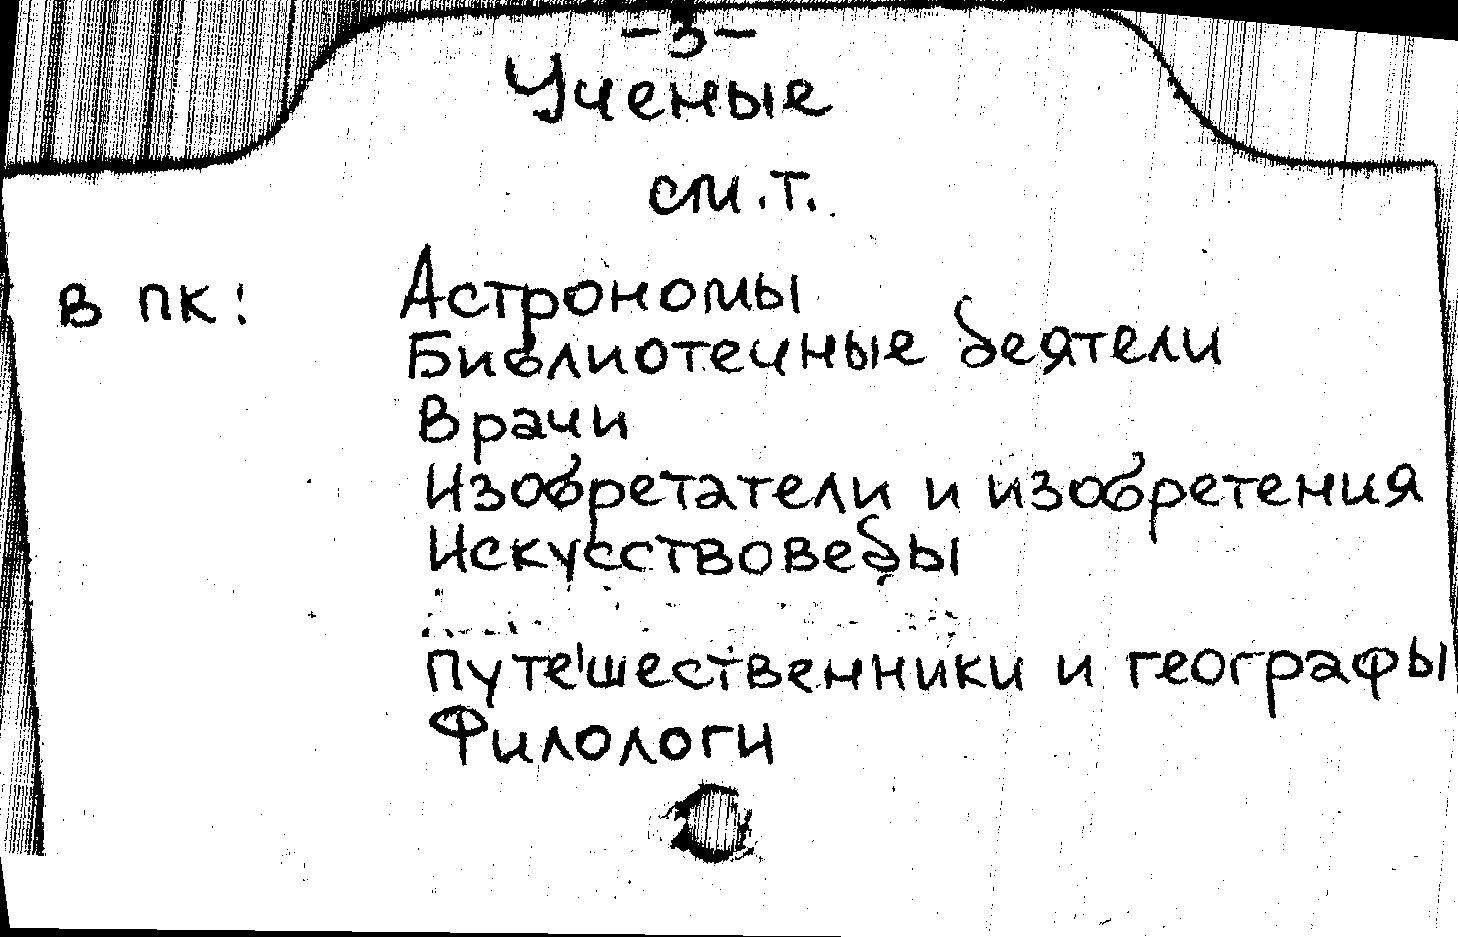 -3-
Ученые
см.т.
в ПК: Астрономы
Библиотечные деятели
Врачи
Изобретатели и изобретения
Искусствоведы
Путешественники и географы
Филологи